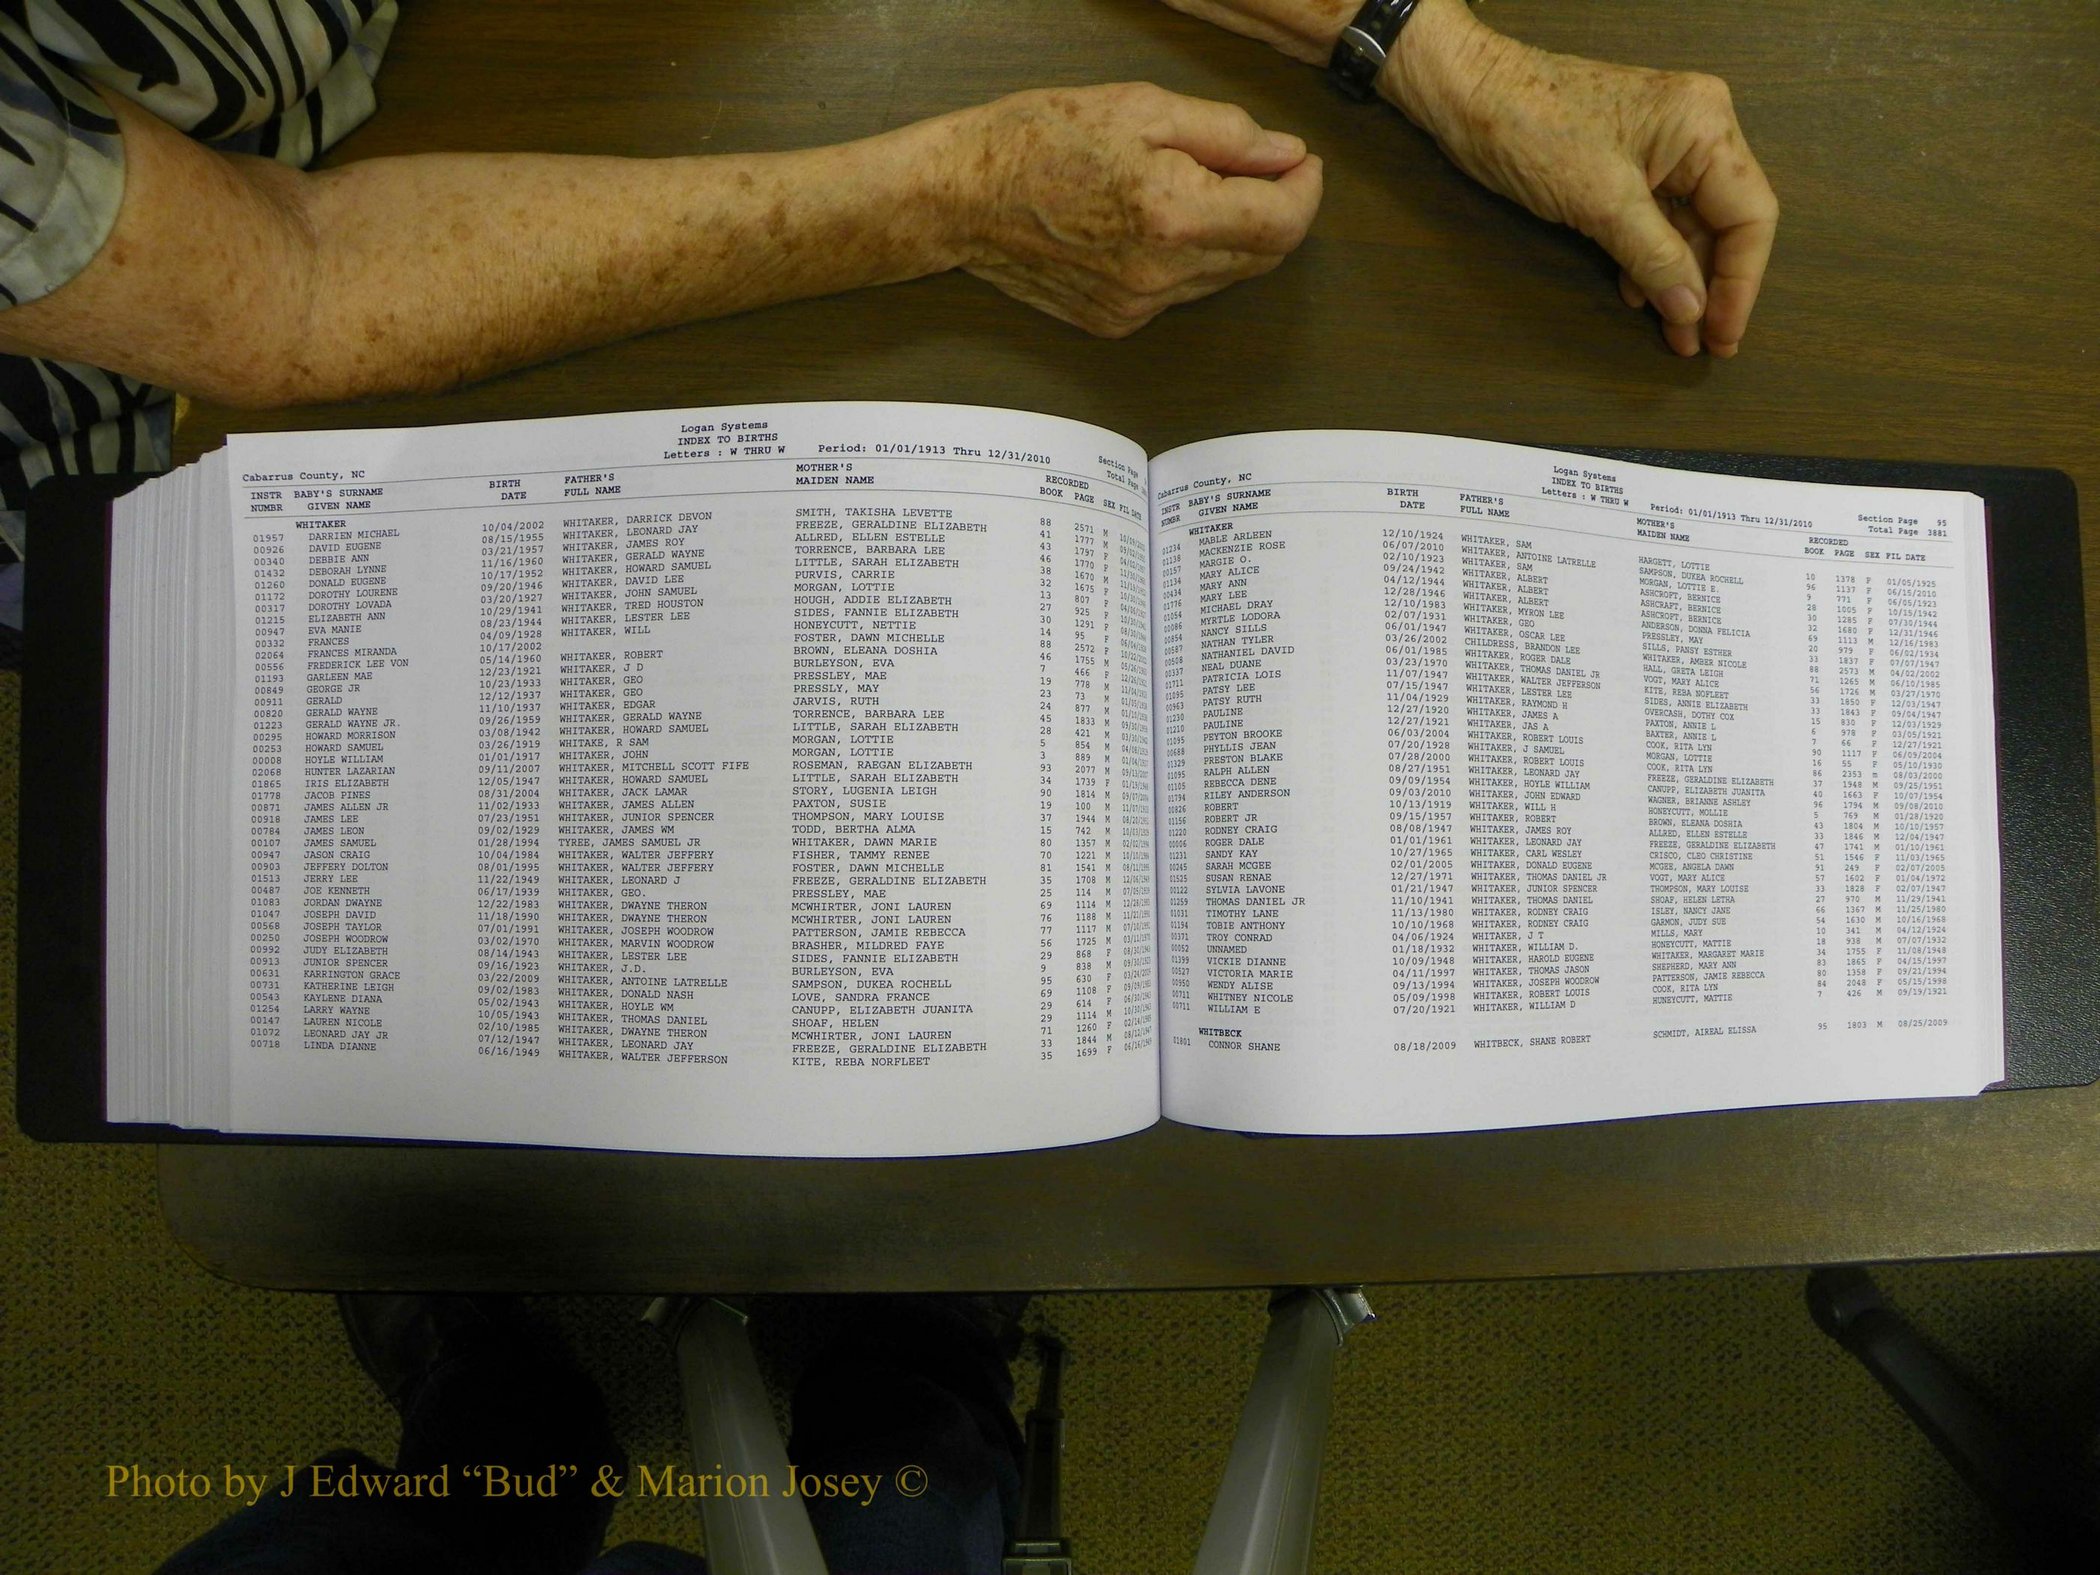 Logan Systems
INDEX TO BIRTHS
Letters : W THRU W Period: 01/01/1913 Thru 12/31/2010
Cabarrus County, NC Section Page
Total Page
INSTR NUMBR BABY'S SURNAME GIVEN NAME BIRTH DATE FATHER'S FULL NAME MOTHER'S MAIDEN NAME RECORDED BOOK PAGE SEX FIL DATE
WHITAKER
01957 DARRIEN MICHAEL 10/04/2002 WHITAKER, DARRICK DEVON SMITH, TAKISHA LEVETTE 88 2571 M
00926 DAVID EUGENE 08/15/1955 WHITAKER, LEONARD JAY FREEZE, GERALDINE ELIZABETH 41 1777 M
00340 DEBBIE ANN 03/21/1957 WHITAKER, JAMES ROY ALLRED, ELLEN ESTELLE 43 1797 F
01432 DEBORAH LYNNE 11/16/1960 WHITAKER, GERALD WAYNE TORRENCE, BARBARA LEE 46 1770 F
01260 DONALD EUGENE 10/17/1952 WHITAKER, HOWARD SAMUEL LITTLE, SARAH ELIZABETH 38 1670 M
01172 DOROTHY LOURENE 09/20/1946 WHITAKER, DAVID LEE PURVIS, CARRIE 32 1675 F
00317 DOROTHY LOVADA 03/20/1927 WHITAKER, JOHN SAMUEL MORGAN, LOTTIE 13 807 F
01215 ELIZABETH ANN 10/29/1941 WHITAKER, TRED HOUSTON HOUGH, ADDIE ELIZABETH 27 925 F
00947 EVA MANIE 08/23/1944 WHITAKER, LESTER LEE SIDES, FANNIE ELIZABETH 30 1291 F
00332 FRANCES 04/09/1928 WHITAKER, WILL HONEYCUTT, NETTIE 14 95 F
02064 FRANCES MIRANDA 10/17/2002 FOSTER, DAWN MICHELLE 88 2572 F
00556 FREDERICK LEE VON 05/14/1960 WHITAKER, ROBERT BROWN, ELEANA DOSHIA 46 1755 M
01193 GARLEEN MAE 12/23/1921 WHITAKER, J D BURLEYSON, EVA 7 466 F
00849 GEORGE JR 10/23/1933 WHITAKER, GEO PRESSLEY, MAE 19 778 M
00911 GERALD 12/12/1937 WHITAKER, GEO PRESSLY, MAY 23 73 M
00820 GERALD WAYNE 11/10/1937 WHITAKER, EDGAR JARVIS, RUTH 24 877 M
01223 GERALD WAYNE JR. 09/26/1959 WHITAKER, GERALD WAYNE TORRENCE, BARBARA LEE 45 1833 M
00295 HOWARD MORRISON 03/08/1942 WHITAKER, HOWARD SAMUEL LITTLE, SARAH ELIZABETH 28 421 M
00253 HOWARD SAMUEL 03/26/1919 WHITAKE, R SAM MORGAN, LOTTIE 5 854 M
00008 HOYLE WILLIAM 01/01/1917 WHITAKER, JOHN MORGAN, LOTTIE 3 889 M
02068 HUNTER LAZARIAN 09/11/2007 WHITAKER, MITCHELL SCOTT FIFE ROSEMAN, RAEGAN ELIZABETH 93 2077 M
01865 IRIS ELIZABETH 12/05/1947 WHITAKER, HOWARD SAMUEL LITTLE, SARAH ELIZABETH 34 1739 F
01778 JACOB PINES 08/31/2004 WHITAKER, JACK LAMAR STORY, LUGENIA LEIGH 90 1814 M
00871 JAMES ALLEN JR 11/02/1933 WHITAKER, JAMES ALLEN PAXTON, SUSIE 19 100 M
00918 JAMES LEE 07/23/1951 WHITAKER, JUNIOR SPENCER THOMPSON, MARY LOUISE 37 1944 M
00784 JAMES LEON 09/02/1929 WHITAKER, JAMES WM TODD, BERTHA ALMA 15 742 M
00107 JAMES SAMUEL 01/28/1994 TYREE, JAMES SAMUEL JR WHITAKER, DAWN MARIE 80 1357 M
00947 JASON CRAIG 10/04/1984 WHITAKER, WALTER JEFFERY FISHER, TAMMY RENEE 70 1221 M
00903 JEFFERY DOLTON 08/01/1995 WHITAKER, WALTER JEFFERY FOSTER, DAWN MICHELLE 81 1541 M
01513 JERRY LEE 11/22/1949 WHITAKER, LEONARD J FREEZE, GERALDINE ELIZABETH 35 1708 M
00487 JOE KENNETH 06/17/1939 WHITAKER, GEO. PRESSLEY, MAE 25 114 M
01083 JORDAN DWAYNE 12/22/1983 WHITAKER, DWAYNE THERON MCWHIRTER, JONI LAUREN 69 1114 M
01047 JOSEPH DAVID 11/18/1990 WHITAKER, DWAYNE THERON MCWHIRTER, JONI LAUREN 76 1188 M
00568 JOSEPH TAYLOR 07/01/1991 WHITAKER, JOSEPH WOODROW PATTERSON, JAMIE REBECCA 77 1117 M
00250 JOSEPH WOODROW 03/02/1970 WHITAKER, MARVIN WOODROW BRASHER, MILDRED FAYE 56 1725 M
00992 JUDY ELIZABETH 08/14/1943 WHITAKER, LESTER LEE SIDES, FANNIE ELIZABETH 29 868 F
00913 JUNIOR SPENCER 09/16/1923 WHITAKER, J.D. BURLEYSON, EVA 9 838 M
00631 KARRINGTON GRACE 03/22/2009 WHITAKER, ANTOINE LATRELLE SAMPSON, DUKEA ROCHELL 95 630 F
00731 KATHERINE LEIGH 09/02/1983 WHITAKER, DONALD NASH LOVE, SANDRA FRANCE 69 1108 F
00543 KAYLENE DIANA 05/02/1943 WHITAKER, HOYLE WM CANUPP, ELIZABETH JUANITA 29 614 F
01254 LARRY WAYNE 10/05/1943 WHITAKER, THOMAS DANIEL SHOAF, HELEN 29 1114 M
00147 LAUREN NICOLE 02/10/1985 WHITAKER, DWAYNE THERON MCWHIRTER, JONI LAUREN 71 1260 F
01072 LEONARD JAY JR 07/12/1947 WHITAKER, LEONARD JAY FREEZE, GERALDINE ELIZABETH 33 1844 M
00718 LINDA DIANNE 06/16/1949 WHITAKER, WALTER JEFFERSON KITE, REBA NORFLEET 35 1699 F
Logan Systems
INDEX TO BIRTHS
Letters : W THRU W Period: 01/01/1913 Thru 12/31/2010
Cabarrus County, NC Section Page 95
Total Page 3881
INSTR NUMBR BABY'S SURNAME GIVEN NAME BIRTH DATE FATHER'S FULL NAME MOTHER'S MAIDEN NAME RECORDED BOOK PAGE SEX FIL DATE
WHITAKER
MABLE ARLEEN 12/10/1924 WHITAKER, SAM HARGETT, LOTTIE 10 1378 F 01/05/1925
MACKENZIE ROSE 06/07/2010 WHITAKER, ANTOINE LATRELLE SAMPSON, DUKEA ROCHELL 96 1137 F 06/15/2010
MARGIE O. 02/10/1923 WHITAKER, SAM MORGAN, LOTTIE E. 9 771 F 06/05/1923
MARY ALICE 09/24/1942 WHITAKER, ALBERT ASHCROFT, BERNICE 28 1005 F 10/15/1942
MARY ANN 04/12/1944 WHITAKER, ALBERT ASHCRAFT, BERNICE 30 1285 F 07/30/1944
MARY LEE 12/28/1946 WHITAKER, ALBERT ASHCROFT, BERNICE 32 1680 F 12/31/1946
MICHAEL DRAY 12/10/1983 WHITAKER, MYRON LEE ANDERSON, DONNA FELICIA 69 1113 M 12/16/1983
MYRTLE LODORA 02/07/1931 WHITAKER, GEO PRESSLEY, MAY 20 979 F 06/02/1934
NANCY SILLS 06/01/1947 WHITAKER, OSCAR LEE SILLS, PANSY ESTHER 33 1837 F 07/07/1947
NATHAN TYLER 03/26/2002 CHILDRESS, BRANDON LEE WHITAKER, AMBER NICOLE 88 2573 M 04/02/2002
NATHANIEL DAVID 06/01/1985 WHITAKER, ROGER DALE HALL, GRETA LEIGH 71 1265 M 06/10/1985
NEAL DUANE 03/23/1970 WHITAKER, THOMAS DANIEL JR VOGT, MARY ALICE 56 1726 M 03/27/1970
PATRICIA LOIS 11/07/1947 WHITAKER, WALTER JEFFERSON KITE, REBA NOFLEET 33 1850 F 12/03/1947
PATSY LEE 07/15/1947 WHITAKER, LESTER LEE SIDES, ANNIE ELIZABETH 33 1843 F 09/04/1947
PATSY RUTH 11/04/1929 WHITAKER, RAYMOND H OVERCASH, DOTHY COX 15 830 F 12/03/1929
PAULINE 12/27/1920 WHITAKER, JAMES A PAXTON, ANNIE L 6 978 F 03/05/1921
PAULINE 12/27/1921 WHITAKER, JAS A BAXTER, ANNIE L 7 66 F 12/27/1921
PEYTON BROOKE 06/03/2004 WHITAKER, ROBERT LOUIS COOK, RITA LYN 90 1117 F 06/09/2004
PHYLLIS JEAN 07/20/1928 WHITAKER, J SAMUEL MORGAN, LOTTIE 16 55 F 05/10/1930
PRESTON BLAKE 07/28/2000 WHITAKER, ROBERT LOUIS COOK, RITA LYN 86 2353 m 08/03/2000
RALPH ALLEN 08/27/1951 WHITAKER, LEONARD JAY FREEZE, GERALDINE ELIZABETH 37 1948 M 09/25/1951
REBECCA DENE 09/09/1954 WHITAKER, HOYLE WILLIAM CANUPP, ELIZABETH JUANITA 40 1663 F 10/07/1954
RILEY ANDERSON 09/03/2010 WHITAKER, JOHN EDWARD WAGNER, BRIANNE ASHLEY 96 1794 M 09/08/2010
ROBERT 10/13/1919 WHITAKER, WILL H HONEYCUTT, MOLLIE 5 769 M 01/28/1920
ROBERT JR 09/15/1957 WHITAKER, ROBERT BROWN, ELEANA DOSHIA 43 1804 M 10/10/1957
RODNEY CRAIG 08/08/1947 WHITAKER, JAMES ROY ALLRED, ELLEN ESTELLE 33 1846 M 12/04/1947
ROGER DALE 01/01/1961 WHITAKER, LEONARD JAY FREEZE, GERALDINE ELIZABETH 47 1741 M 01/10/1961
SANDY KAY 10/27/1965 WHITAKER, CARL WESLEY CRISCO, CLEO CHRISTINE 51 1546 F 11/03/1965
SARAH MCGEE 02/01/2005 WHITAKER, DONALD EUGENE MCGEE, ANGELA DAWN 91 249 F 02/07/2005
SUSAN RENAE 12/27/1971 WHITAKER, THOMAS DANIEL JR VOGT, MARY ALICE 57 1602 F 01/04/1972
SYLVIA LAVONE 01/21/1947 WHITAKER, JUNIOR SPENCER THOMPSON, MARY LOUISE 33 1828 F 02/07/1947
THOMAS DANIEL JR 11/10/1941 WHITAKER, THOMAS DANIEL SHOAF, HELEN LETHA 27 970 M 11/29/1941
TIMOTHY LANE 11/13/1980 WHITAKER, RODNEY CRAIG ISLEY, NANCY JANE 66 1367 M 11/25/1980
TOBIE ANTHONY 10/10/1968 WHITAKER, RODNEY CRAIG GARMON, JUDY SUE 54 1630 M 10/16/1968
TROY CONRAD 04/06/1924 WHITAKER, J T MILLS, MARY 10 341 M 04/12/1924
UNNAMED 01/18/1932 WHITAKER, WILLIAM D. HONEYCUTT, MATTIE 18 938 M 07/07/1932
VICKIE DIANNE 10/09/1948 WHITAKER, HAROLD EUGENE WHITAKER, MARGARET MARIE 34 1755 F 11/08/1948
VICTORIA MARIE 04/11/1997 WHITAKER, THOMAS JASON SHEPHERD, MARY ANN 83 1865 F 04/15/1997
WENDY ALISE 09/13/1994 WHITAKER, JOSEPH WOODROW PATTERSON, JAMIE REBECCA 80 1358 F 09/21/1994
WHITNEY NICOLE 05/09/1998 WHITAKER, ROBERT LOUIS COOK, RITA LYN 84 2048 F 05/15/1998
00711 WILLIAM E 07/20/1921 WHITAKER, WILLIAM D HUNEYCUTT, MATTIE 7 426 M 09/19/1921
WHITBECK
01801 CONNOR SHANE 08/18/2009 WHITBECK, SHANE ROBERT SCHMIDT, AIREAL ELISSA 95 1803 M 08/25/2009
Photo by J Edward “Bud” & Marion Josey ©